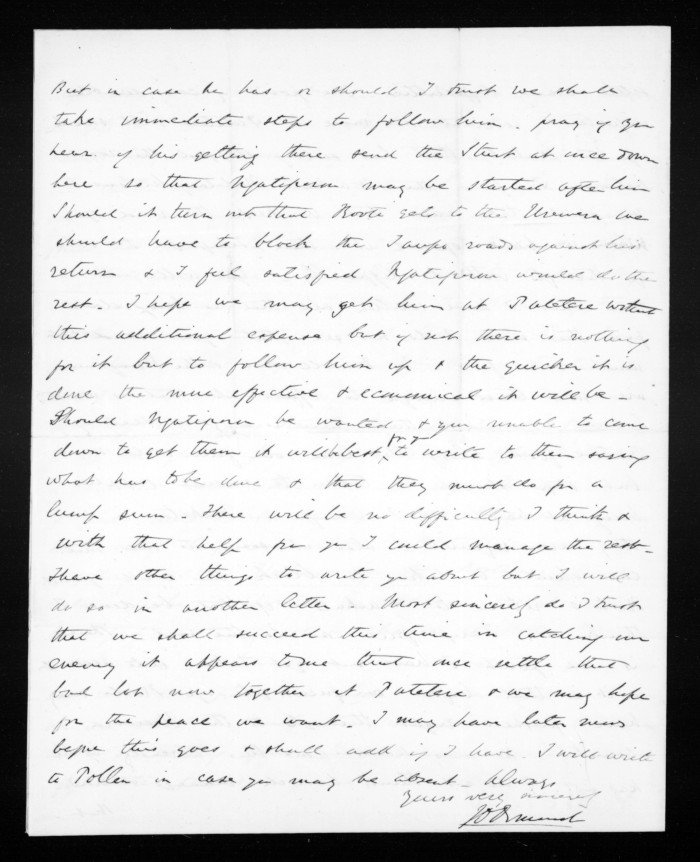 But in case he has or should I trust we shall
take immediate steps to follow him. pray if you
hear of his getting there send the Sturt at once down
here so that Ngatiporou may be started after him
Should it turn out that Kooti gets to the Urewera we
should have to block the Taupo roads against his
return & I feel satisfied Ngatiporou would do the
rest. I hope we may get him at Patetere without
this additional expense but if not there is nothing
for it but to follow him up & the quicker it is
done the more effective & economical it will be -
Should Ngatiporou be wanted & you unable to come
down to get them it will be best for you to write to them saying
what has to be done & that they must do for a
lump sum - There will be no difficulty I think &
with that help from you I could manage the rest -
I have other things to write you about but I will
do so in another letter Most sincerely do I trust
that we shall succeed this time in catching our
enemy it appears to me that once settle that
bad lot now together at Patetere & we may hope
for the peace we want. I may have later news
before this goes & shall add if I have. I will write
to Pollen in case you may be absent - Always
Yours very sincerely
JD Ormond